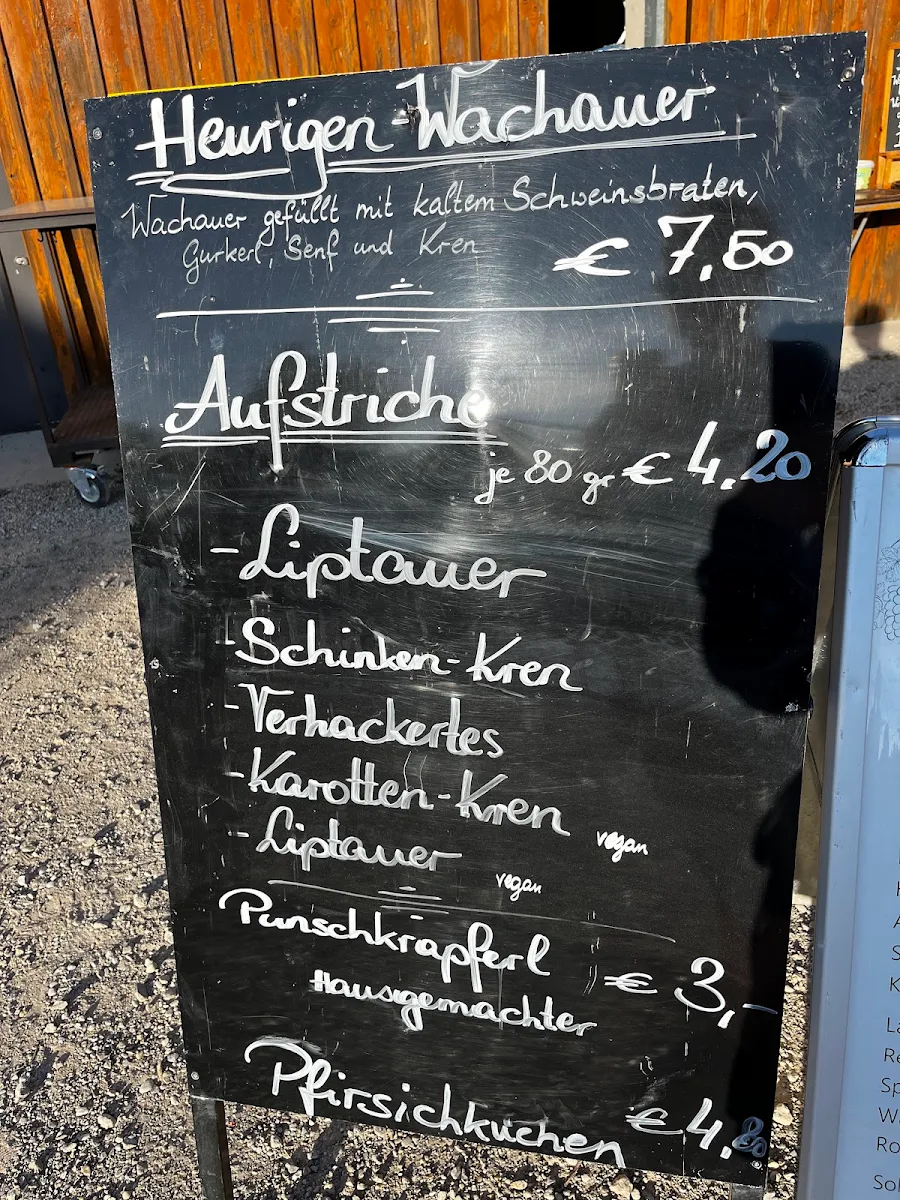 Heurigen-Wachauer
Wachauer gefüllt mit kaltem Schweinsbraten,
Gurkerl, Senf und Kren
€ 7,50
Aufstriche
je 80 gr € 4,20
- Liptauer
- Schinken-Kren
- Verhackertes
- Karotten-Kren vegan
- Liptauer vegan
Punschkrapferl € 3,-
Hausgemachter
Pfirsichkuchen € 4,80